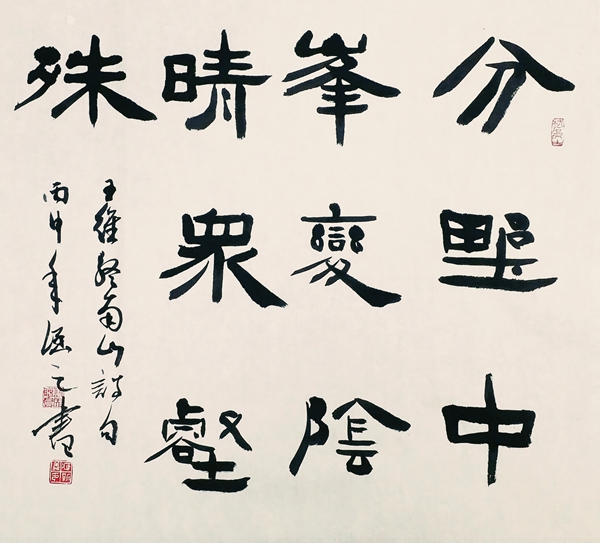 分野中
峯變陰
晴眾壑
殊
王維終南山詩句
丙申年涵之書